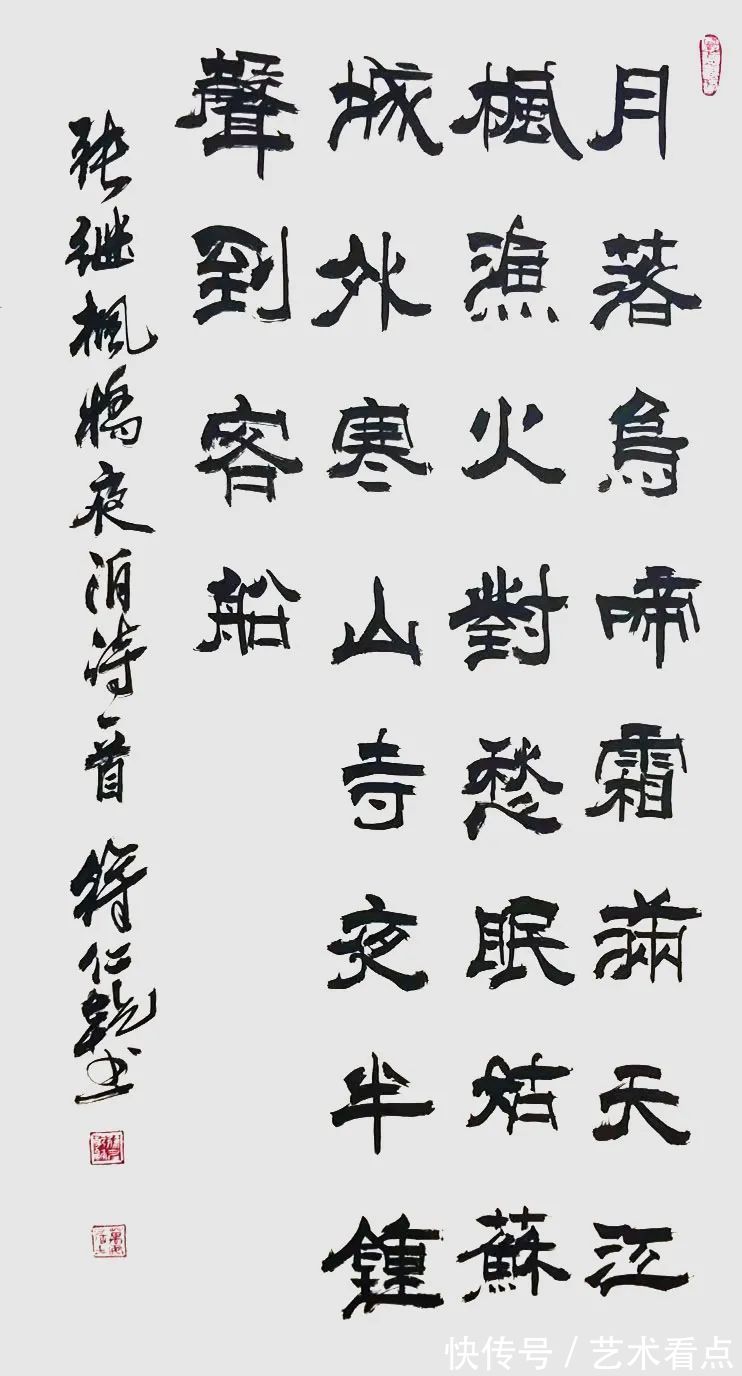 月落烏啼霜滿天江
楓漁火對愁眠姑蘇
城外寒山寺夜半鍾
聲到客船
张继楓橋夜泊诗一首 仁乾书
快传号 / 艺术看点